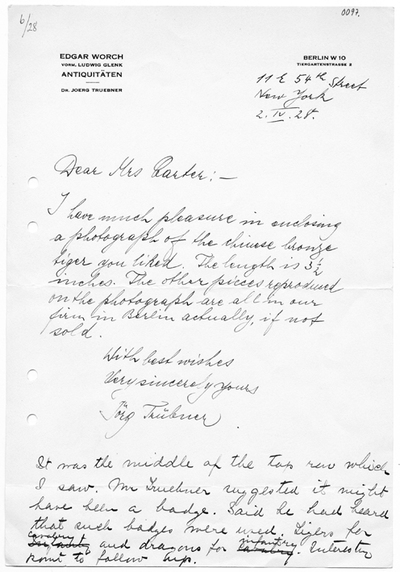 6/28
0097.
EDGAR WORCH
VORM. LUDWIG GLENK
ANTIQUITÄTEN
DR. JOERG TRUEBNER
BERLIN W 10
TIERGARTENSTRASSE 2
11 E 54th Street
New York
2. IV. 28.
Dear Mrs :—
I have much pleasure in enclosing
a photograph of the chinese bronze
tiger you liked. The length is 3½
inches. The other pieces reproduced
on the photograph are all in our
firm in Berlin actually, if not
sold.
With best wishes
Very sincerely yours
Jörg Trübner
It was the middle of the top row which
I saw. Mr Truebner suggested it might
have been a badge. Said he had heard
that such badges were used. Tigers for
cavalry and dragons for infantry. Interesting
point to follow up.